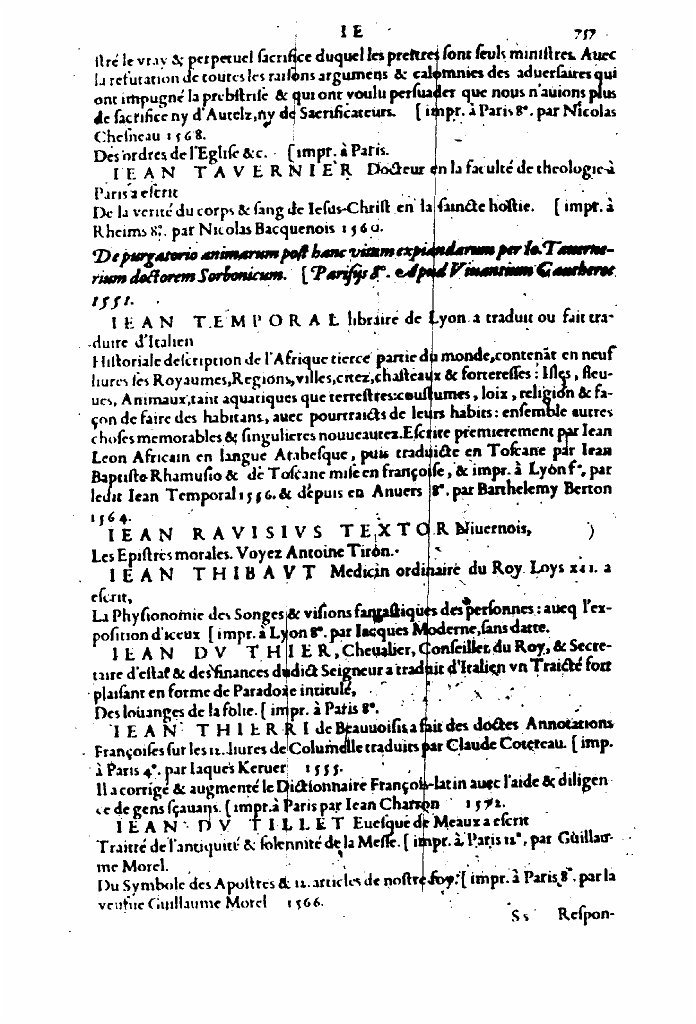 I E 757
ſtré le vray & perpetuel ſacrifice duquel les preſtres ſont ſeuls miniſtres. Auec
la refutation de toutes les raiſons argumens & calomnies des aduerſaires qui
ont impugné la prebſtriſe & qui ont voulu perſuader que nous n'auions plus
de ſacrifice ny d'Autelz, ny de Sacrificateurs. [impr. à Paris 8°. par Nicolas
Cheſneau 1568.
Des ordres de l'Egliſe &c. [impr. à Paris.
IEAN TAVERNIER Docteur en la faculté de theologie à
Paris a eſcrit
De la verité du corps & ſang de Ieſus-Chriſt en la ſaincte hoſtie. [impr. à
Rheims 8°. par Nicolas Bacquenois 1560.
De purgatorio animarum poſt hanc vitam expiandarum per Io. Tauerne-
rium doctorem Sorbonicum. [Pariſijs 8°. Apud Viuantium Gautherot
1551.
IEAN TEMPORAL libraire de Lyon a traduit ou fait tra-
duire d'Italien
Hiſtoriale deſcription de l'Afrique tierce partie du monde, contenãt en neuf
liures ſes Royaumes, Regions, villes, citez, chaſteaux & fortereſſes: Iſles, fleu-
ues, Animaux, tant aquatiques que terreſtres: couſtumes, loix, religion & fa-
çon de faire des habitans, auec pourtraicts de leurs habits: enſemble autres
choſes memorables & ſingulieres nouueautez. Eſcrite premierement par Iean
Leon Africain en langue Arabeſque, puis traduicte en Toſcane par Iean
Baptiſte Rhamuſio & de Toſcane miſe en françoiſe, & impr. à Lyon f°. par
ledit Iean Temporal 1556. & depuis en Anuers 8°. par Barthelemy Berton
1564.
IEAN RAVISIVS TEXTOR Niuernois,
Les Epiſtres morales. Voyez Antoine Tiron.
IEAN THIBAVT Medicin ordinaire du Roy Loys XII. a
eſcrit,
La Phyſionomie des Songes & viſions fantaſtiques des perſonnes: aueq l'ex-
poſition d'iceux [impr. à Lyon 8°. par Iacques Moderne, ſans datte.
IEAN DV THIER, Cheualier, Conſeiller du Roy, & Secre-
taire d'eſtat & des finances dudict Seigneur a traduit d'Italien vn Traicté fort
plaiſant en forme de Paradoxe intitulé,
Des louanges de la folie. [impr. à Paris 8°.
IEAN THIERRI de Beauuoiſis a fait des doctes Annotations
Françoiſes ſur les 12. liures de Columelle traduits par Claude Cotereau. [imp.
à Paris 4°. par Iaques Keruer 1555.
Il a corrigé & augmenté le Dictionnaire François-latin auec l'aide & diligen
ce de gens ſçauans. [impr. à Paris par Iean Charron 1572.
IEAN DV TILLET Eueſque de Meaux a eſcrit
Traitté de l'antiquité & ſolennité de la Meſſe. [impr. à Paris 12°. par Guillau-
me Morel.
Du Symbole des Apoſtres & 12. articles de noſtre foy. [impr. à Paris 8°. par la
veufue Guillaume Morel 1566.
Sſ Reſpon-